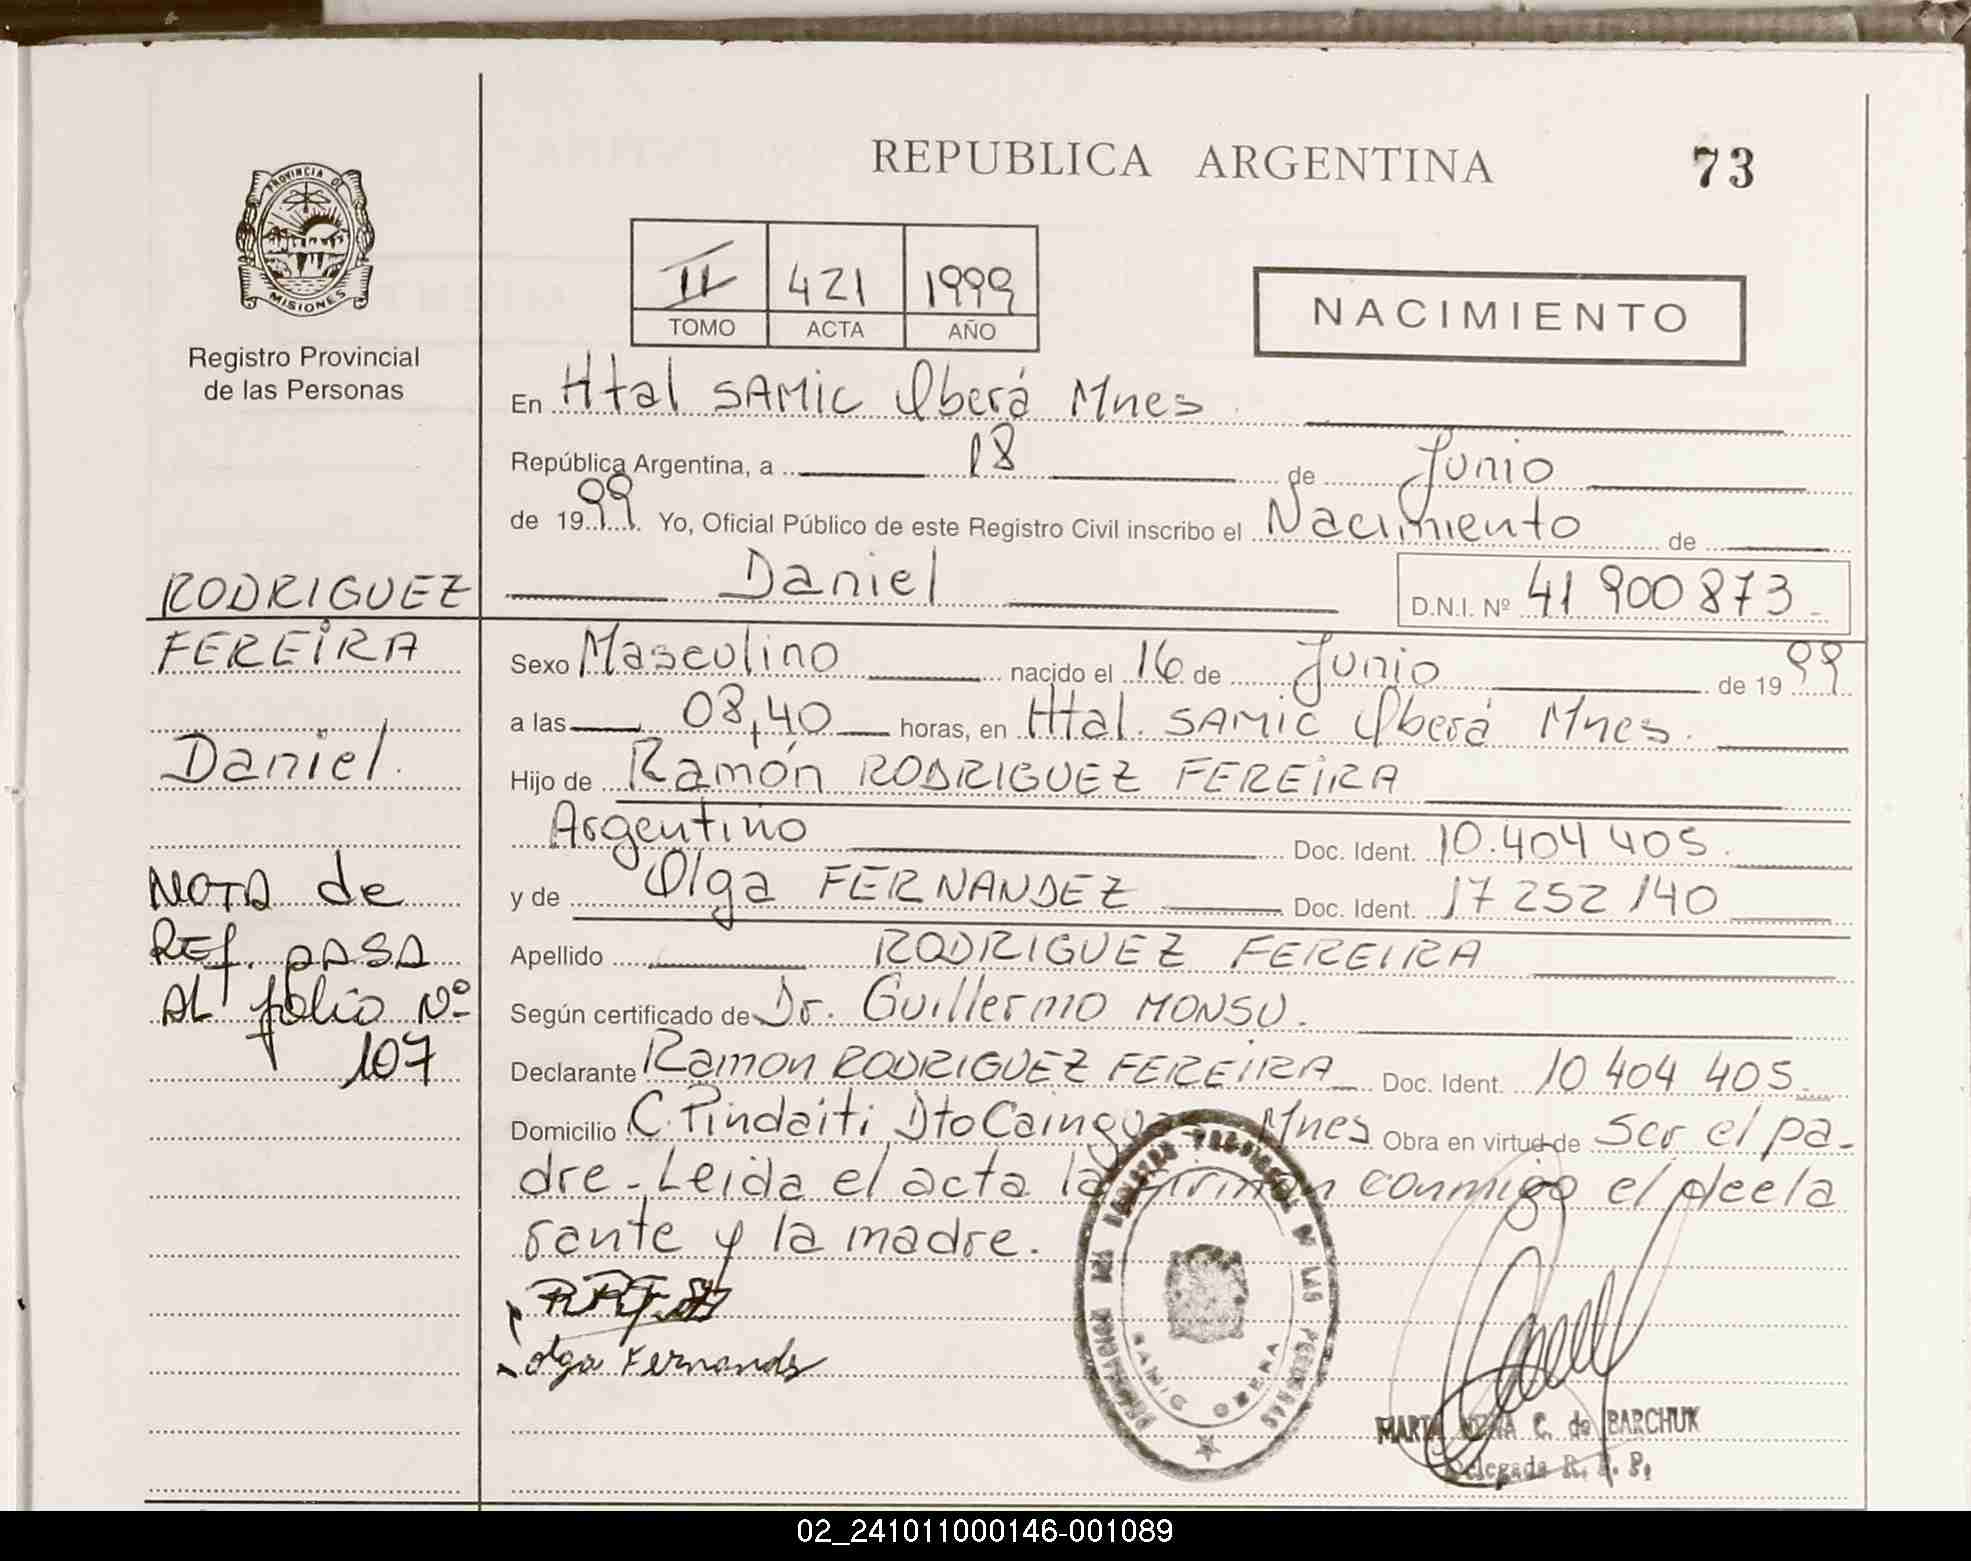 REPUBLICA ARGENTINA
73
PROVINCIA DE
MISIONES
Registro Provincial
de las Personas
II 421 1999
TOMO ACTA AÑO
NACIMIENTO
En Htal SAMIC Oberá Mnes
República Argentina, a 18 de Junio
de 1999. Yo, Oficial Público de este Registro Civil inscribo el Nacimiento de
Daniel D.N.I. Nº 41 900 873
RODRIGUEZ
FEREIRA
Daniel.
NOTA de
REf. PASA
AL folio Nº
107
Sexo Masculino nacido el 16 de Junio de 1999
a las 08,40 horas, en Htal. SAMIC Oberá Mnes.
Hijo de Ramón RODRIGUEZ FEREIRA
Argentino Doc. Ident. 10.404 405.
y de Olga FERNANDEZ Doc. Ident. 17 252 140
Apellido RODRIGUEZ FEREIRA
Según certificado de Dr. Guillermo MONSU.
Declarante Ramon RODRIGUEZ FEREIRA Doc. Ident. 10 404 405.
Domicilio C. Pindaiti Dto Caingua Mnes Obra en virtud de Ser el pa-
dre. Leida el acta la firman conmigo el decla
rante y la madre.
olga Fernandes
REGISTRO PROVINCIAL DE LAS PERSONAS
SAMIC OBERA
C. de BARCHUK
Delegada R. P. P.
02_241011000146-001089